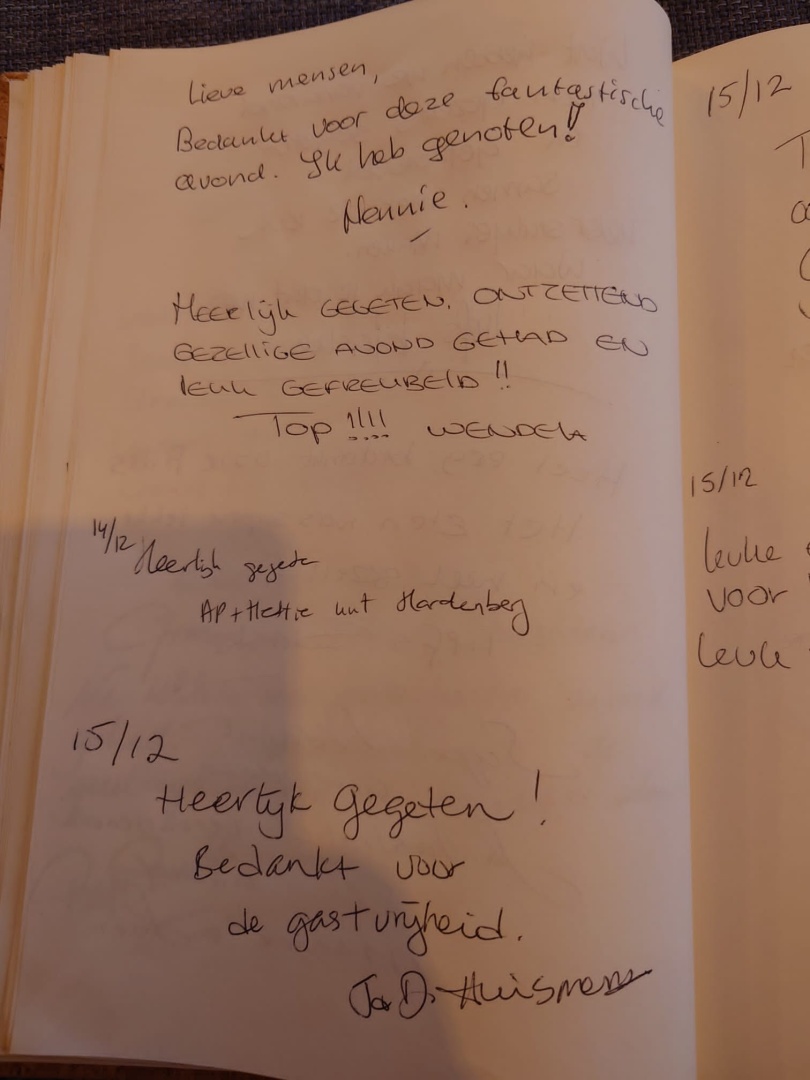 Lieve mensen,
Bedankt voor deze fantastische
avond. Ik heb genoten!!
Hennie.
Heerlijk GEGETEN. ONTZETTEND
GEZELLIGE AVOND GEHAD EN
leuk GEFREUBELD !!
Top !!!! WENDELA
14/12 Heerlijk gegeten
AP + Hettie uut Hardenberg
15/12
Heerlijk gegeten!
Bedankt voor
de gastvrijheid.
D. Huisman
15/12
15/12
leuke
voor
leuk